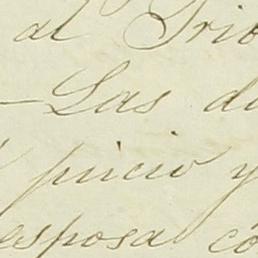 al Trib
- Las di
juicio y
esposa co